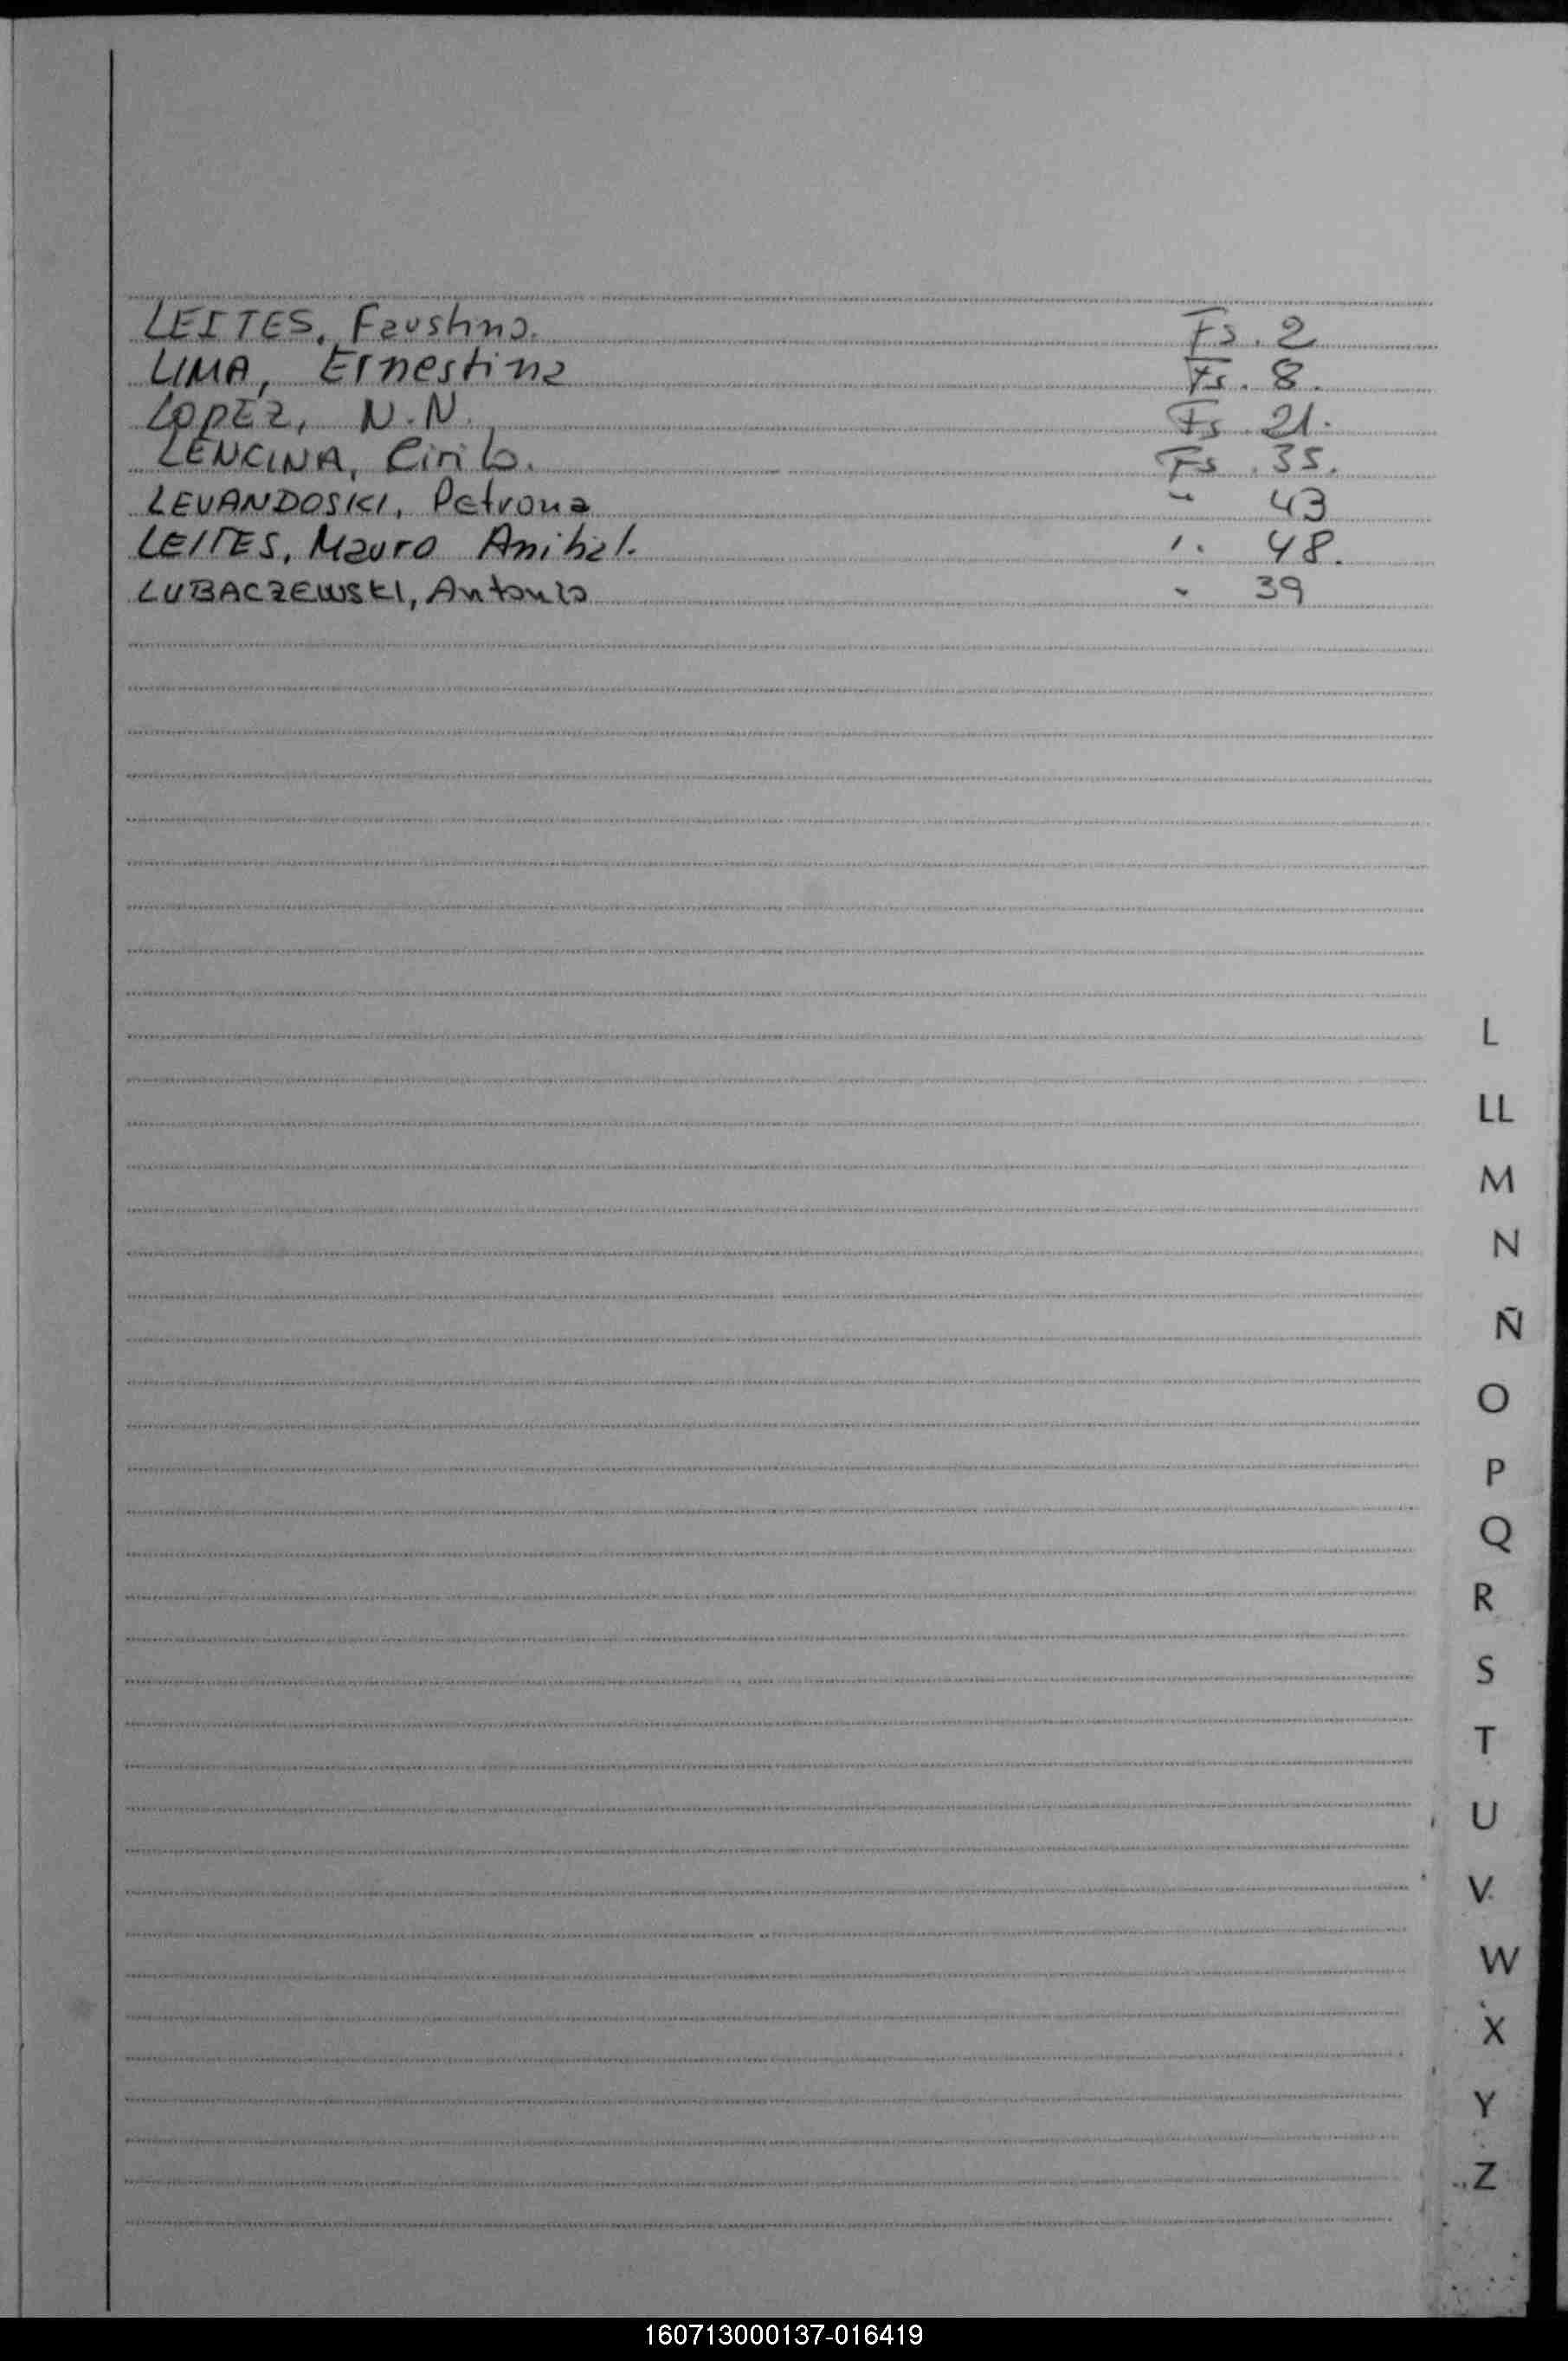 LEITES, Faustino. Fs. 2
LIMA, Ernestina Fs. 8.
LOPEZ, N.N. Fs. 21.
LENCINA, Cirilo. Fs. 35.
LEVANDOSKI, Petrona " 43
LEITES, Mauro Anibal. " 48.
LUBACZEWSKI, Antonio " 39
L
LL
M
N
Ñ
O
P
Q
R
S
T
U
V
W
X
Y
Z
160713000137-016419